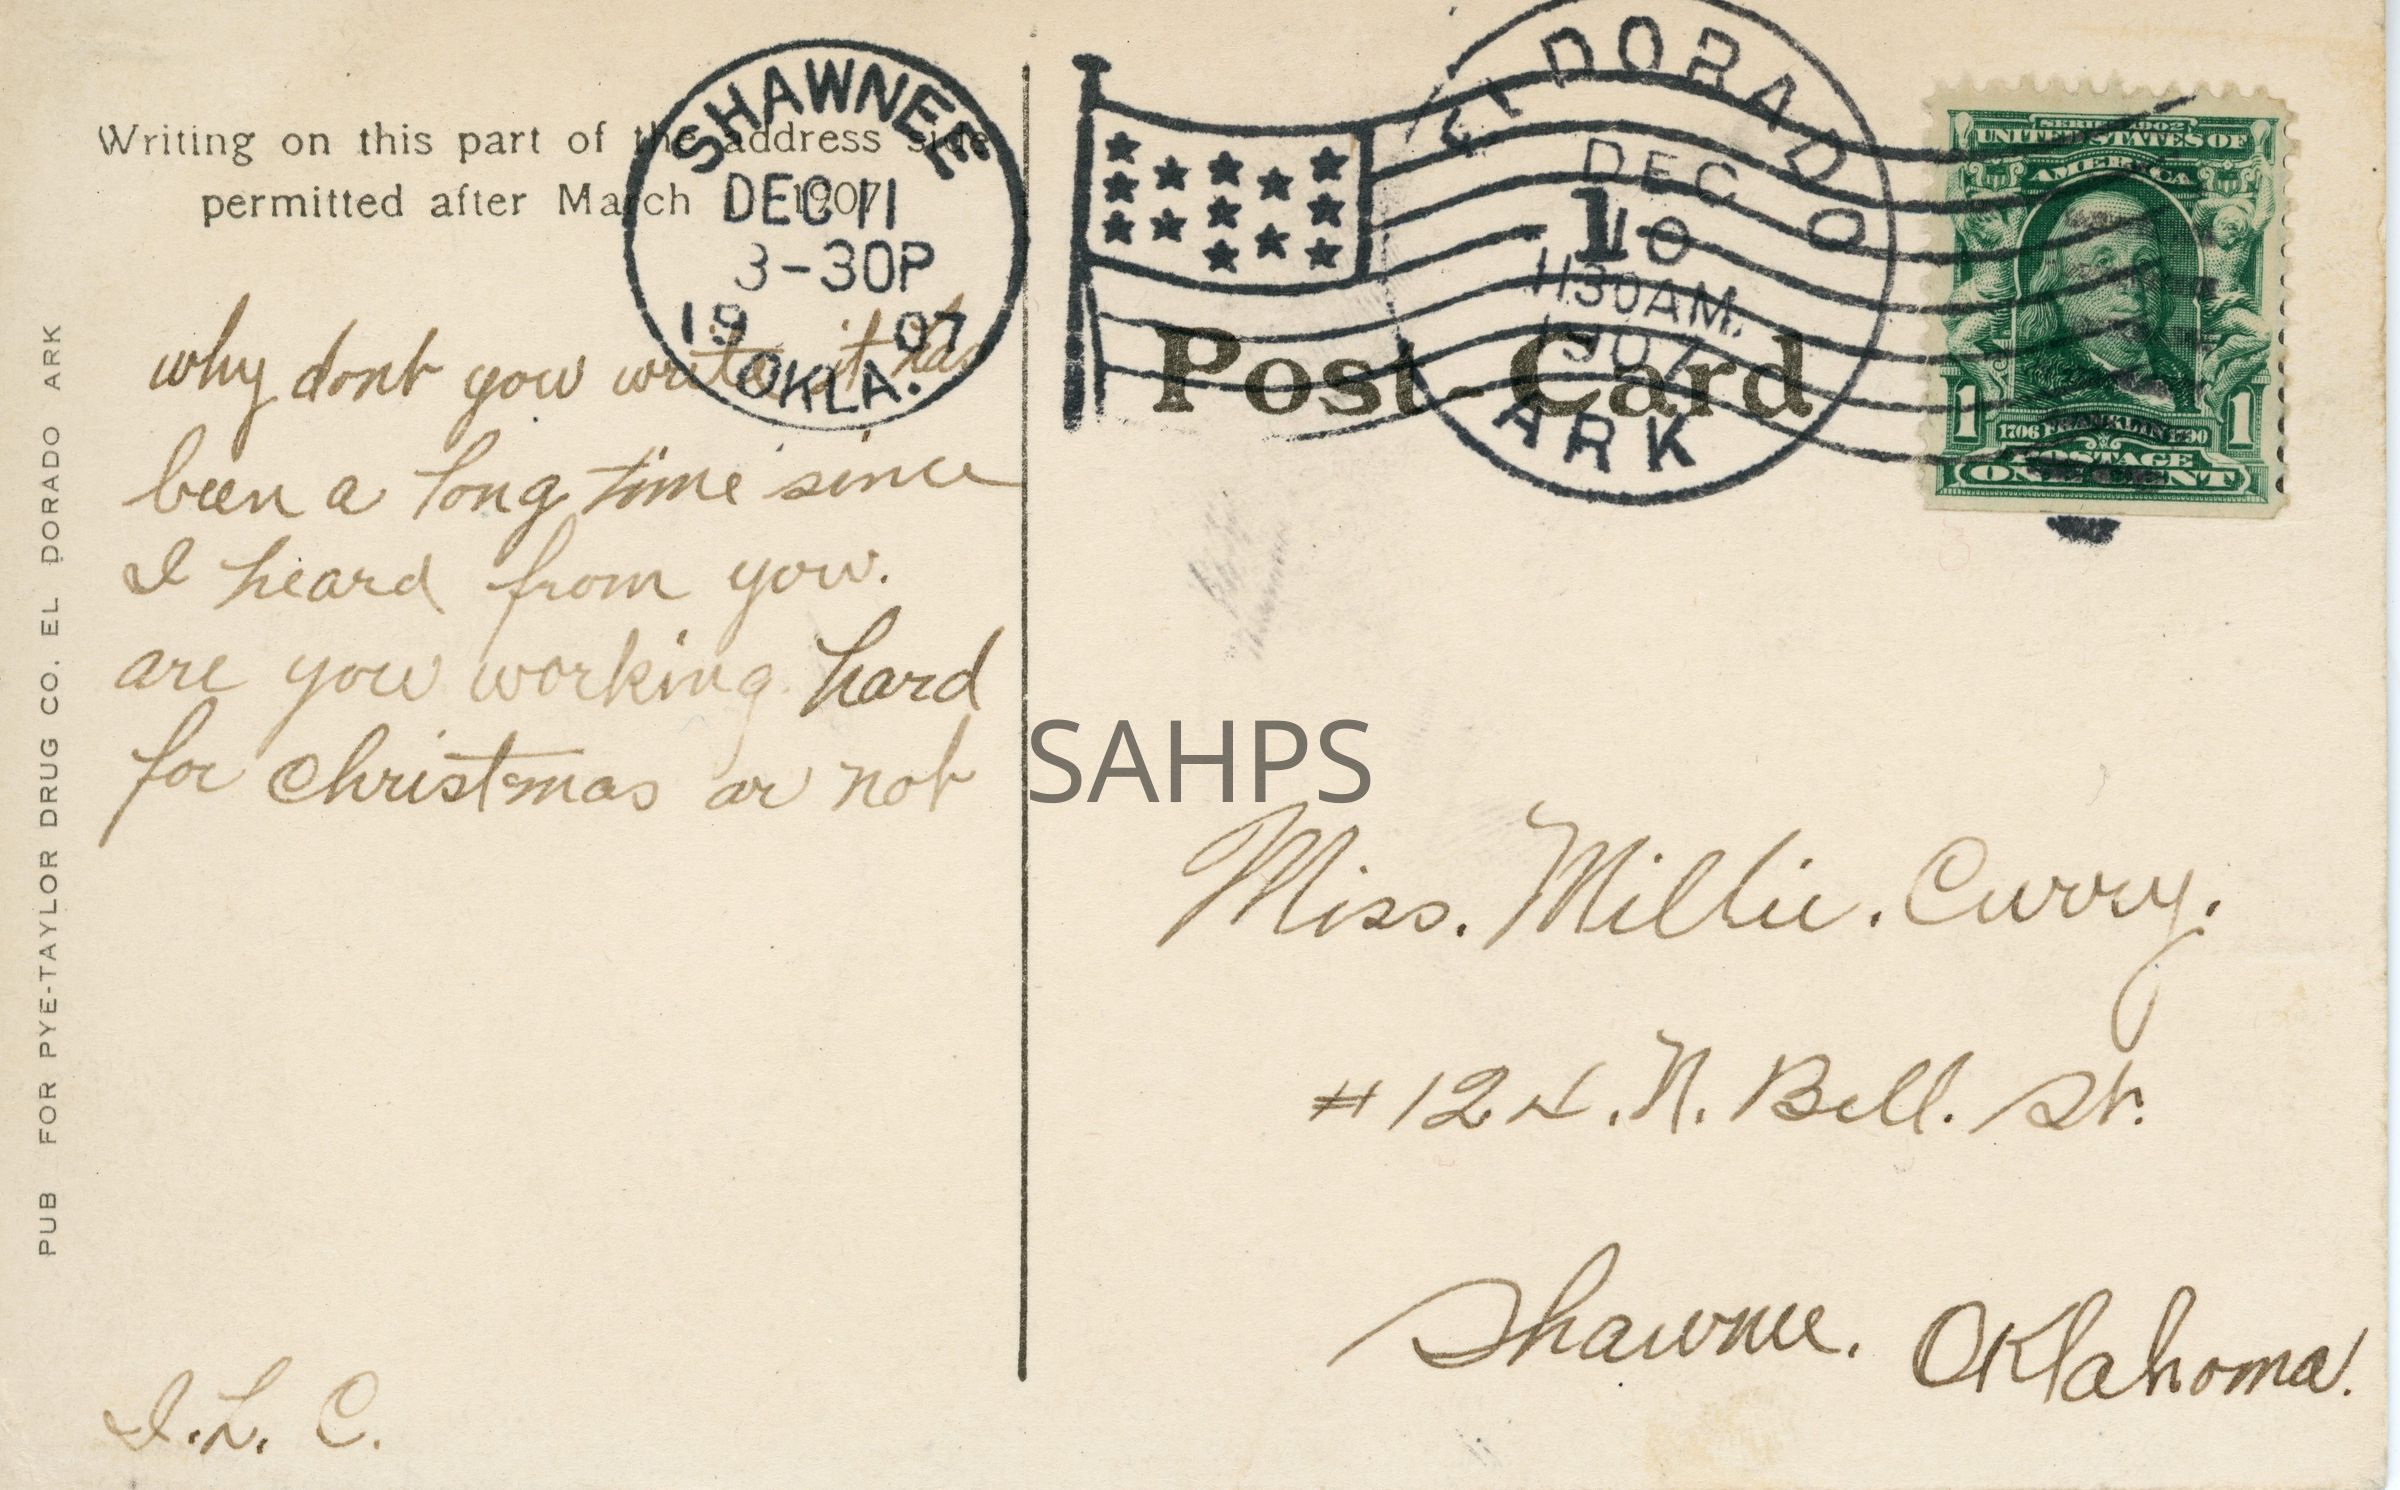 Writing on this part of the address side
permitted after March 1 1907
SHAWNEE
DEC 11
3-30P
19 07
OKLA.
why dont you write it has
been a long time since
I heard from you.
are you working hard
for christmas or not
I. L. C.
PUB FOR PYE-TAYLOR DRUG CO. EL DORADO ARK
EL DORADO
DEC
10
1130AM.
1907
ARK
1
Post Card
SERIES 1902
UNITED STATES OF
AMERICA
1 1
1706 FRANKLIN 1790
POSTAGE
ONE CENT
SAHPS
Miss. Millie. Curry.
# 124. N. Bell. St.
Shawnee. Oklahoma.